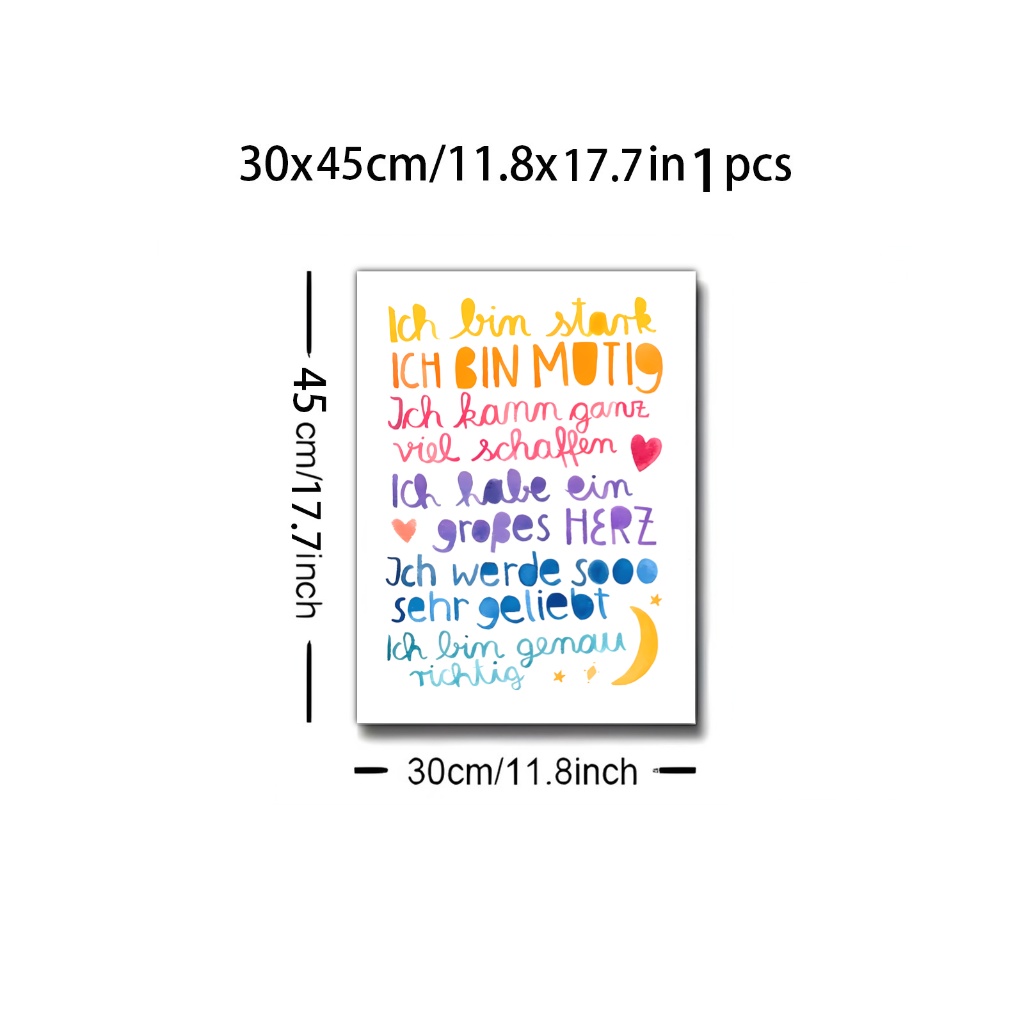 30x45cm/11.8x17.7in 1 pcs
45 cm/17.7inch
Ich bin stark
ICH BIN MUTIG
Ich kann ganz
viel schaffen
Ich habe ein
großes HERZ
Ich werde sooo
sehr geliebt
Ich bin genau
richtig
30cm/11.8inch